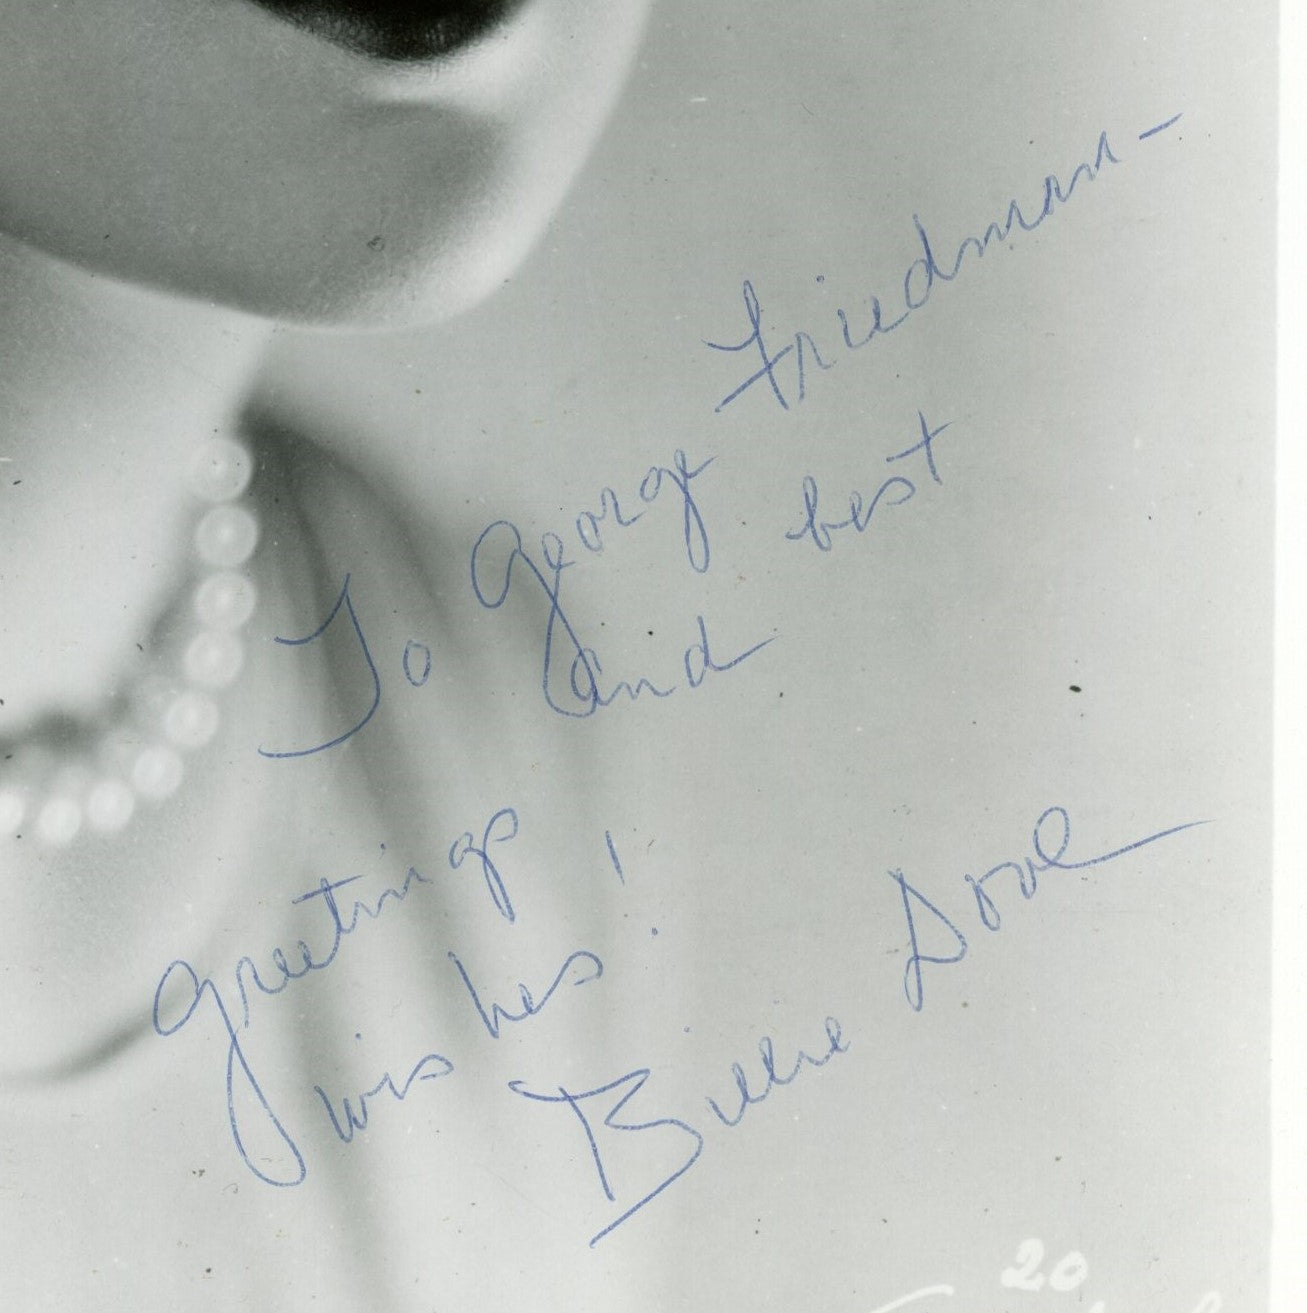 To George Friedman-
greetings and best
wishes!
Billie Dove
20